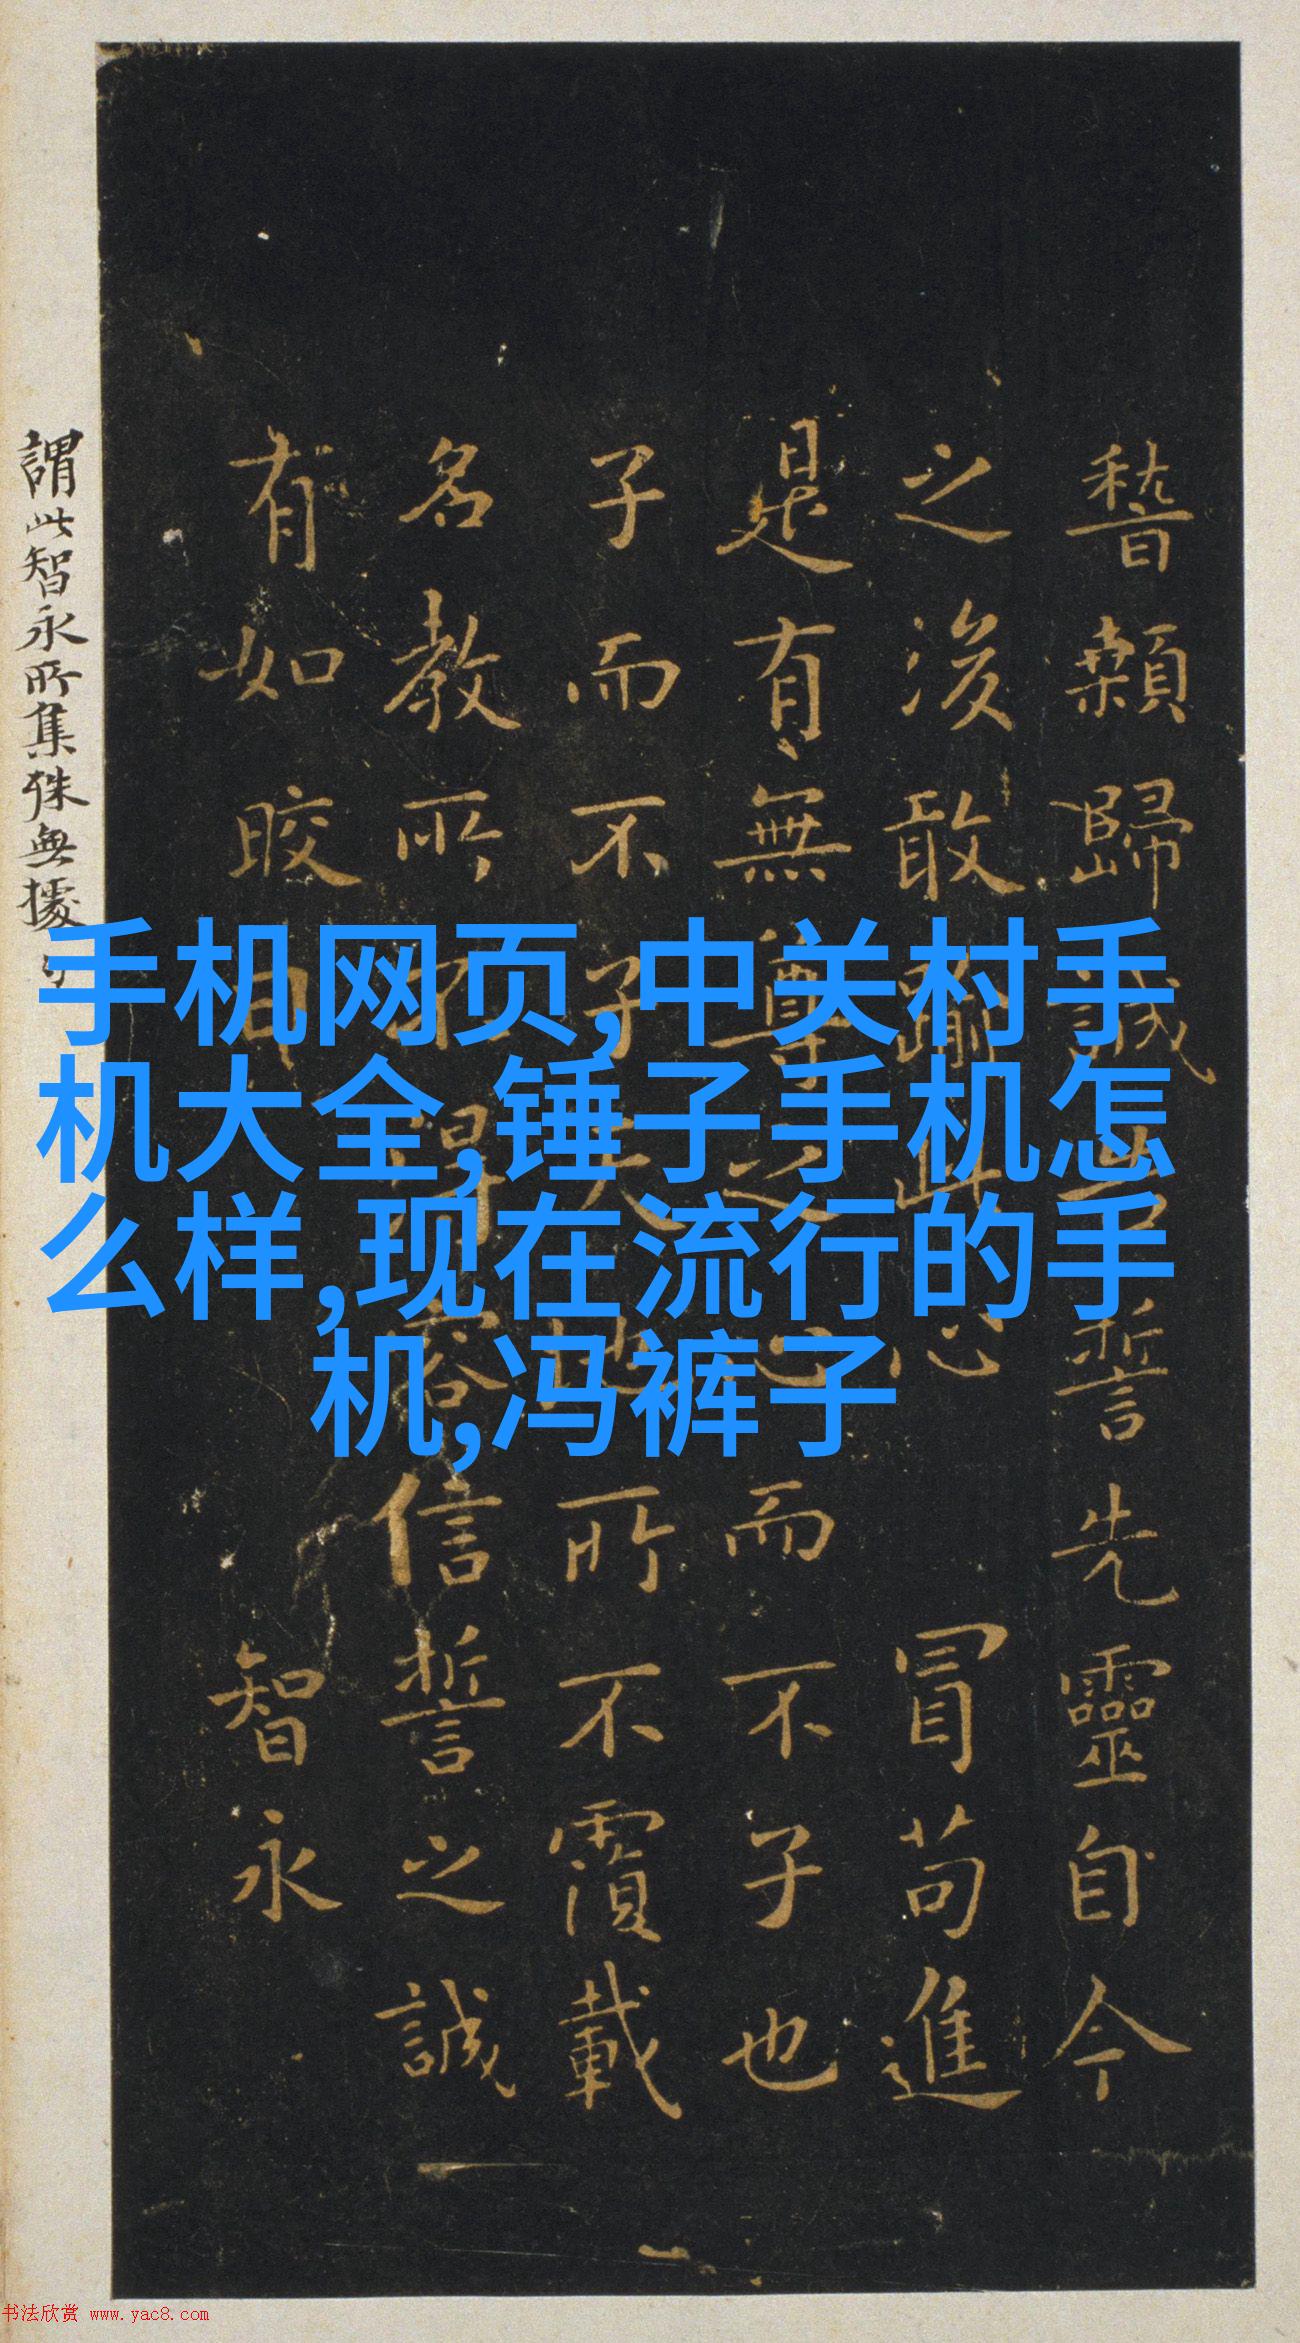 稽顙歸誠告誓先靈自今
之後敢踰此心冒苟進
是有無尊之心而不子也
子而不子天地所不覆載
名教所不得容信誓之誠
有如皎日 智永
謂此智永所集殊無據
手机网页,中关村手
机大全,锤子手机怎
么样,现在流行的手
机,冯裤子
书法欣赏 www.yac8.com